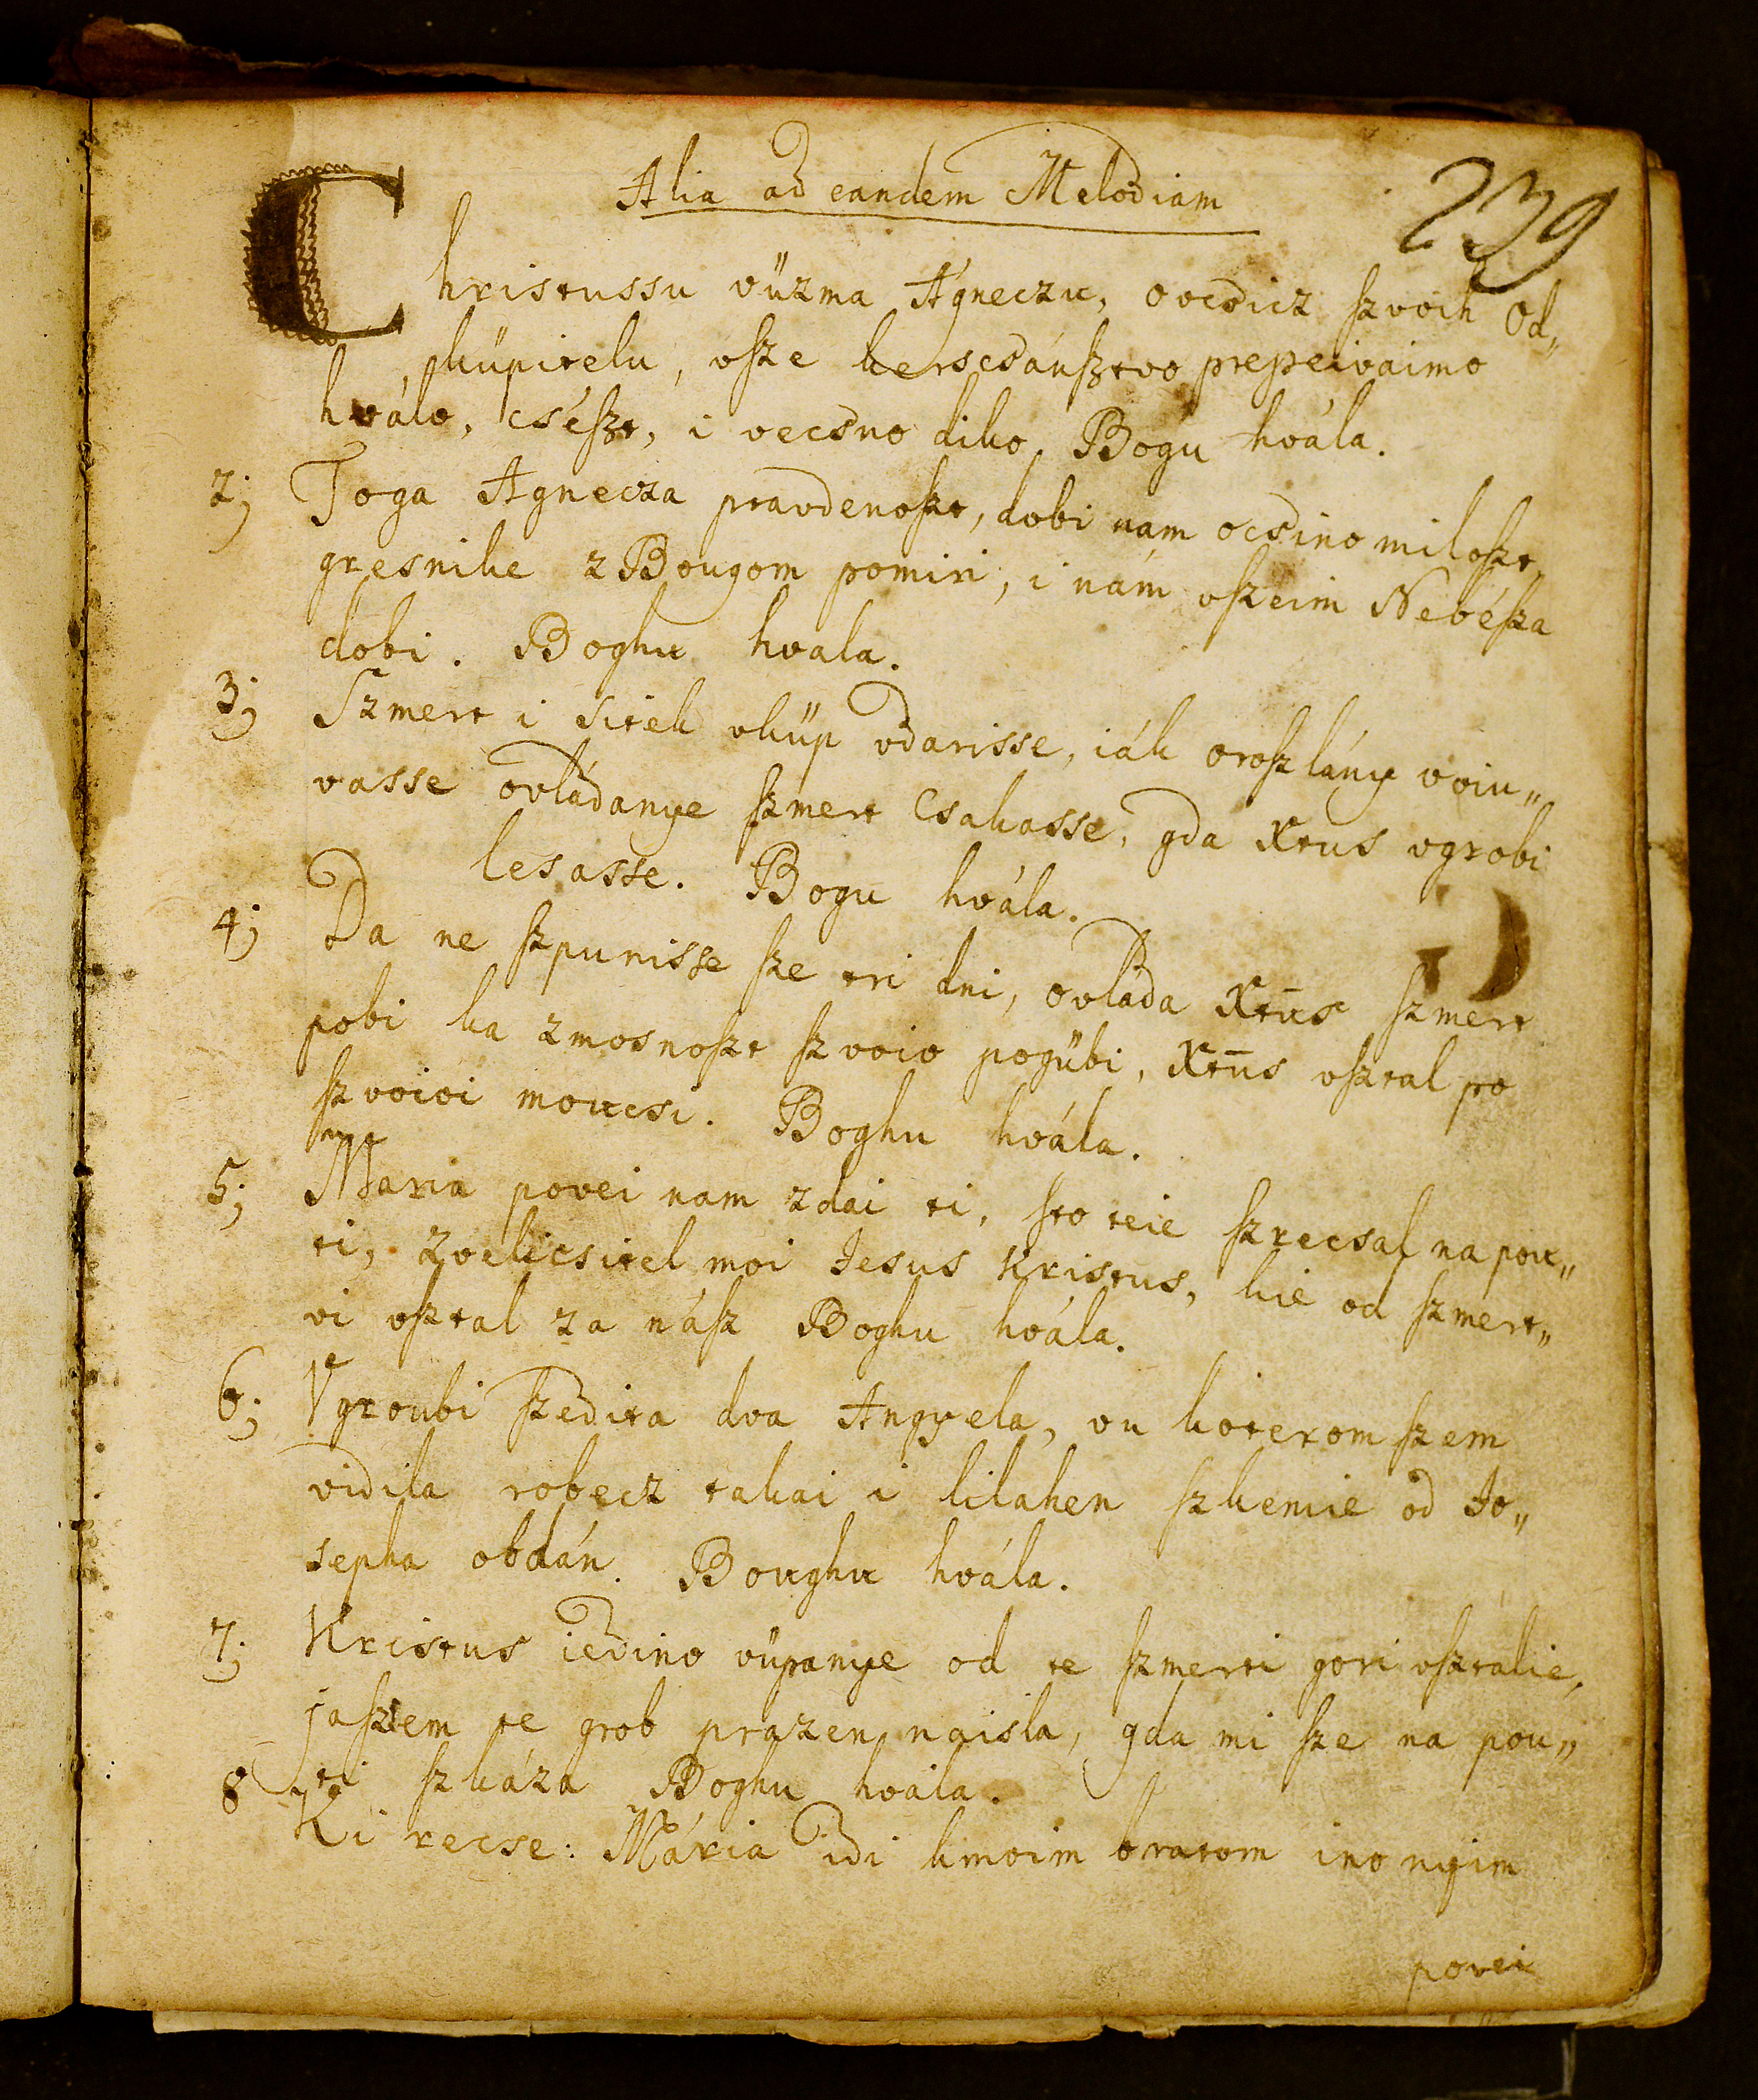 Alia ad eandem Melodiam
239
Christussu vüzma Ágneczu, ovcsicz ſzvoih Od„
küpitelu, vſze kerscsánſztvo prepeivaimo
hválo, cséſzt, i vecsno diko. Bogu hvála.
2; Toga Agnecza pravdenoſzt, dobi nam ocsino miloſzt,
gresnike z Bougom pomiri, i nám vſzeim Nebéſza
dobi. Boghu hvala.
3; Szmert i sitek vküp vdarisse, iák oroſzlány voiu„
vasse ovládanye ſzmert csakasse, gda Xtus vgrobi
lesasse. Bogu hvála.
4; Da ne ſzpunisse ſze tri dni, ovláda Xtūs ſzmert
pobi ka zmosnoſzt ſzvoio pogübi, Xtūs vſztal po
ſzvoioi moucsi. Boghu hvála.
5; Maria povei nam zdai ti, ſto teie ſzrecsal na pou„
ti, zvelicsitel moi Jesus Kristus, kie od ſzmert„
vi vſztal za náſz Boghu hvála.
6; Vgroubi ſzedita dva Angyela, vu koterom ſzem
vidila robecz takai i lilahen ſzkemie od Jo„
sepha obdán. Boughu hvála.
7; Kristus iedino vüpanye od te ſzmerti gori vſztalie,
jaſzem te grob prazen naisla, gda mi ſze na pou„
ti ſzkáza Boghu hvála.
8 Ki recse: Mária idi kmoim bratom ino nyim
povei